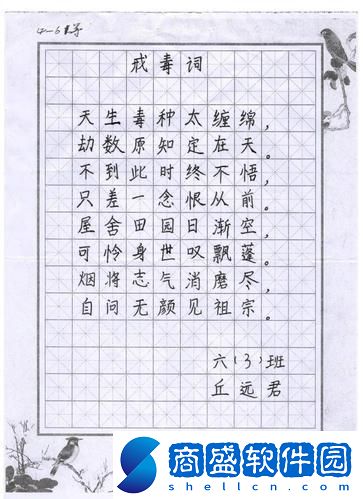 戒毒词
天生毒种太缠绵，
劫数原知定在天。
不到此时终不悟，
只差一念恨从前。
屋舍田园日渐空，
可怜身世叹飘蓬。
烟将志气消磨尽，
自问无颜见祖宗。
六（3）班
丘远君
商盛软件园
shellcn.com